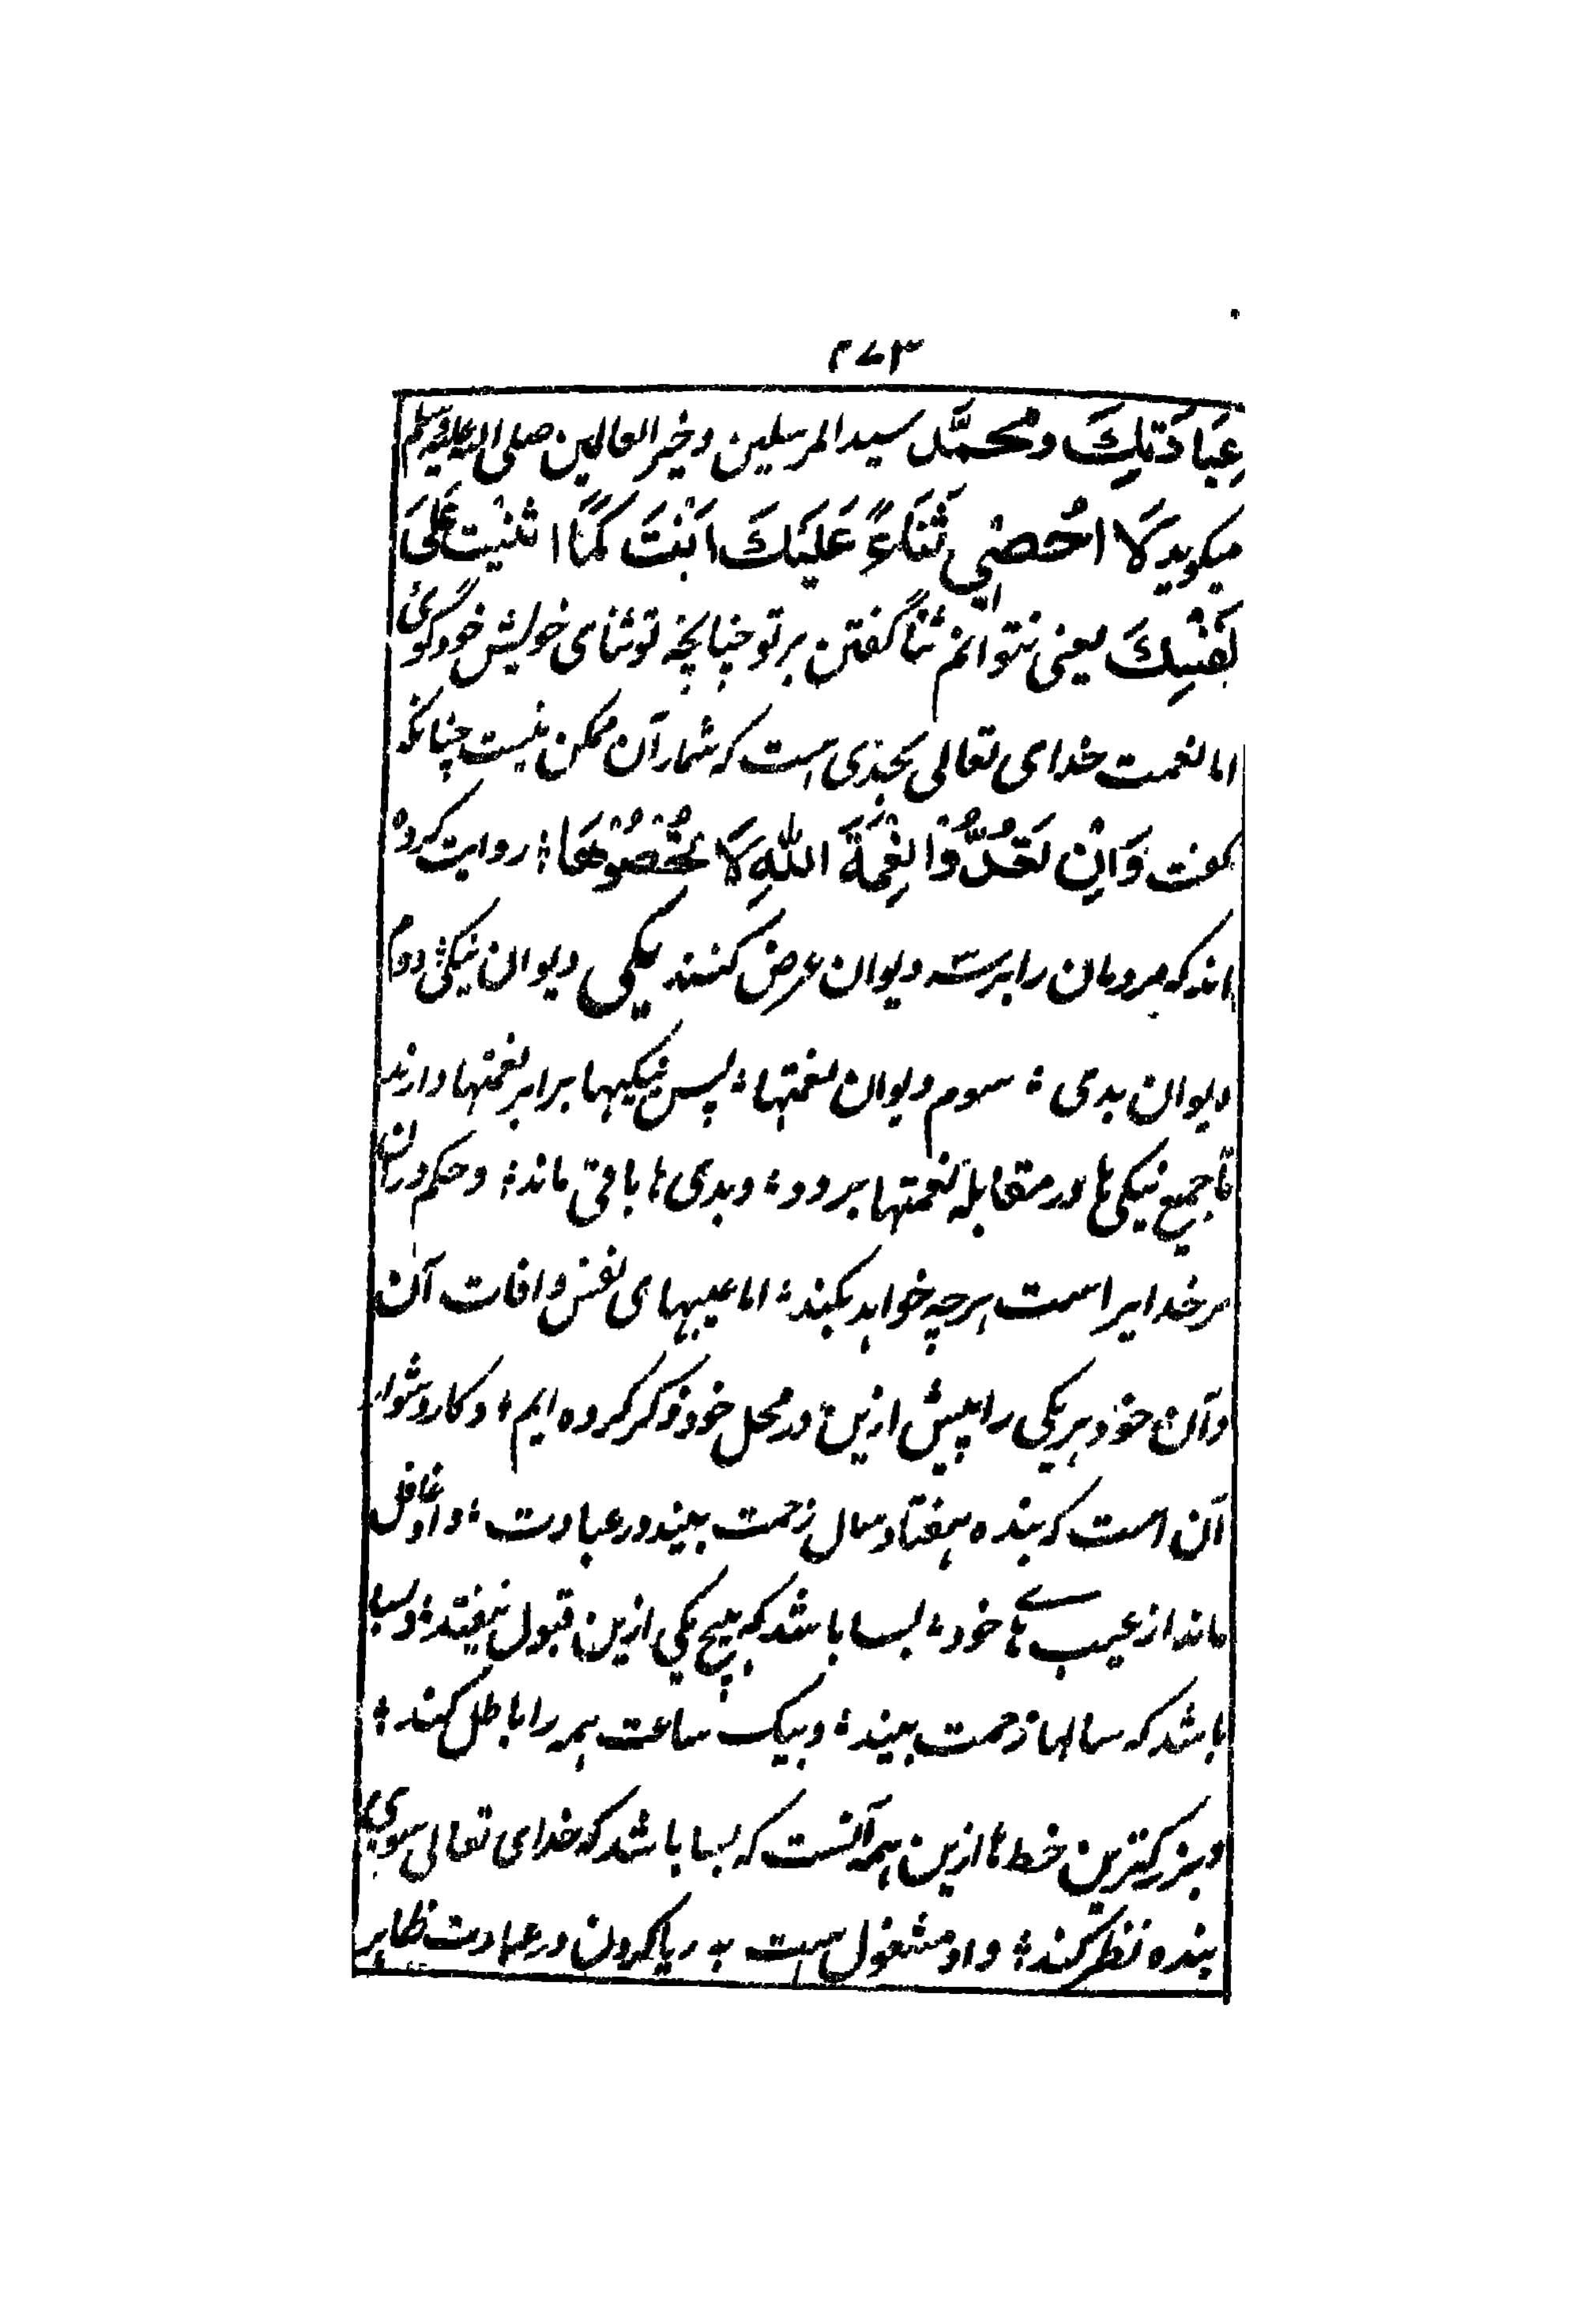 ۲۷۳
عِبَادَتِكَ ومحمَّد سید المرسلین وخیر العالمین صلی الله علیه وسلم
میگوید لَا احُصْیِ ثَنَاءً عَلَیْكَ اَنْتَ كَمَا اثنیت عَلَی
نَفْسِكَ یعنی نتوانم ثنا گفتن بر تو چنانچه تو ثنای خویش خود گوئی
اما نعمت خدای تعالی بحدی است که شمار آن ممکن نیست چنانکه
گفت وَاِنْ تَعُدُّوْا نِعْمَةَ اللهِ لَا تُحْصُوْهَا ؛ روایت کرده
اند که مردمان را بر سه دیوان عرض کنند یکی دیوان نیکی ؛ دوم
دیوان بدی ؛ سوم دیوان نعمتها ؛ پس نیکیها برابر نعمتها دارند
تا جمیع نیکی ها در مقابله نعمتها برود ؛ و بدی ها باقی ماند ؛ و حکم دران
مر خدایراست هرچه خواهد بکند ؛ اما عیبهای نفس و افات آن
و آن خود هر یکی را پیش ازین در محل خود ذکر کرده ایم ؛ و کار دشوار
آن است که بنده هفتاد سال زحمت بیند در عبادت ؛ و او غافل
ماند از عیب هاے خود ؛ بسا باشد که هیچ یکی ازین قبول نیفتد ؛ و بسا
باشد که سالها زحمت بیند ؛ و بیک ساعت همه را باطل کند ؛
و بزرگترین خطرها ازین همه آنست که بسا باشد که خدای تعالی بسوی
بنده نظر کند ؛ و او مشغول است به ریا کردن در عبادت ظاهر